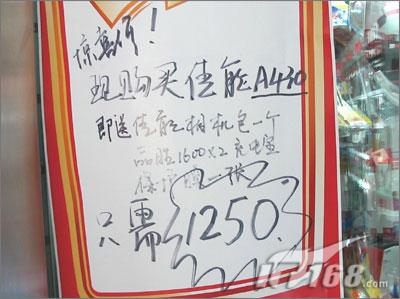 惊喜价!
现购买佳能A430
即送佳能相机包一个
品胜1600×2充电宝
保护贴一张
只需1250.
IT168.com